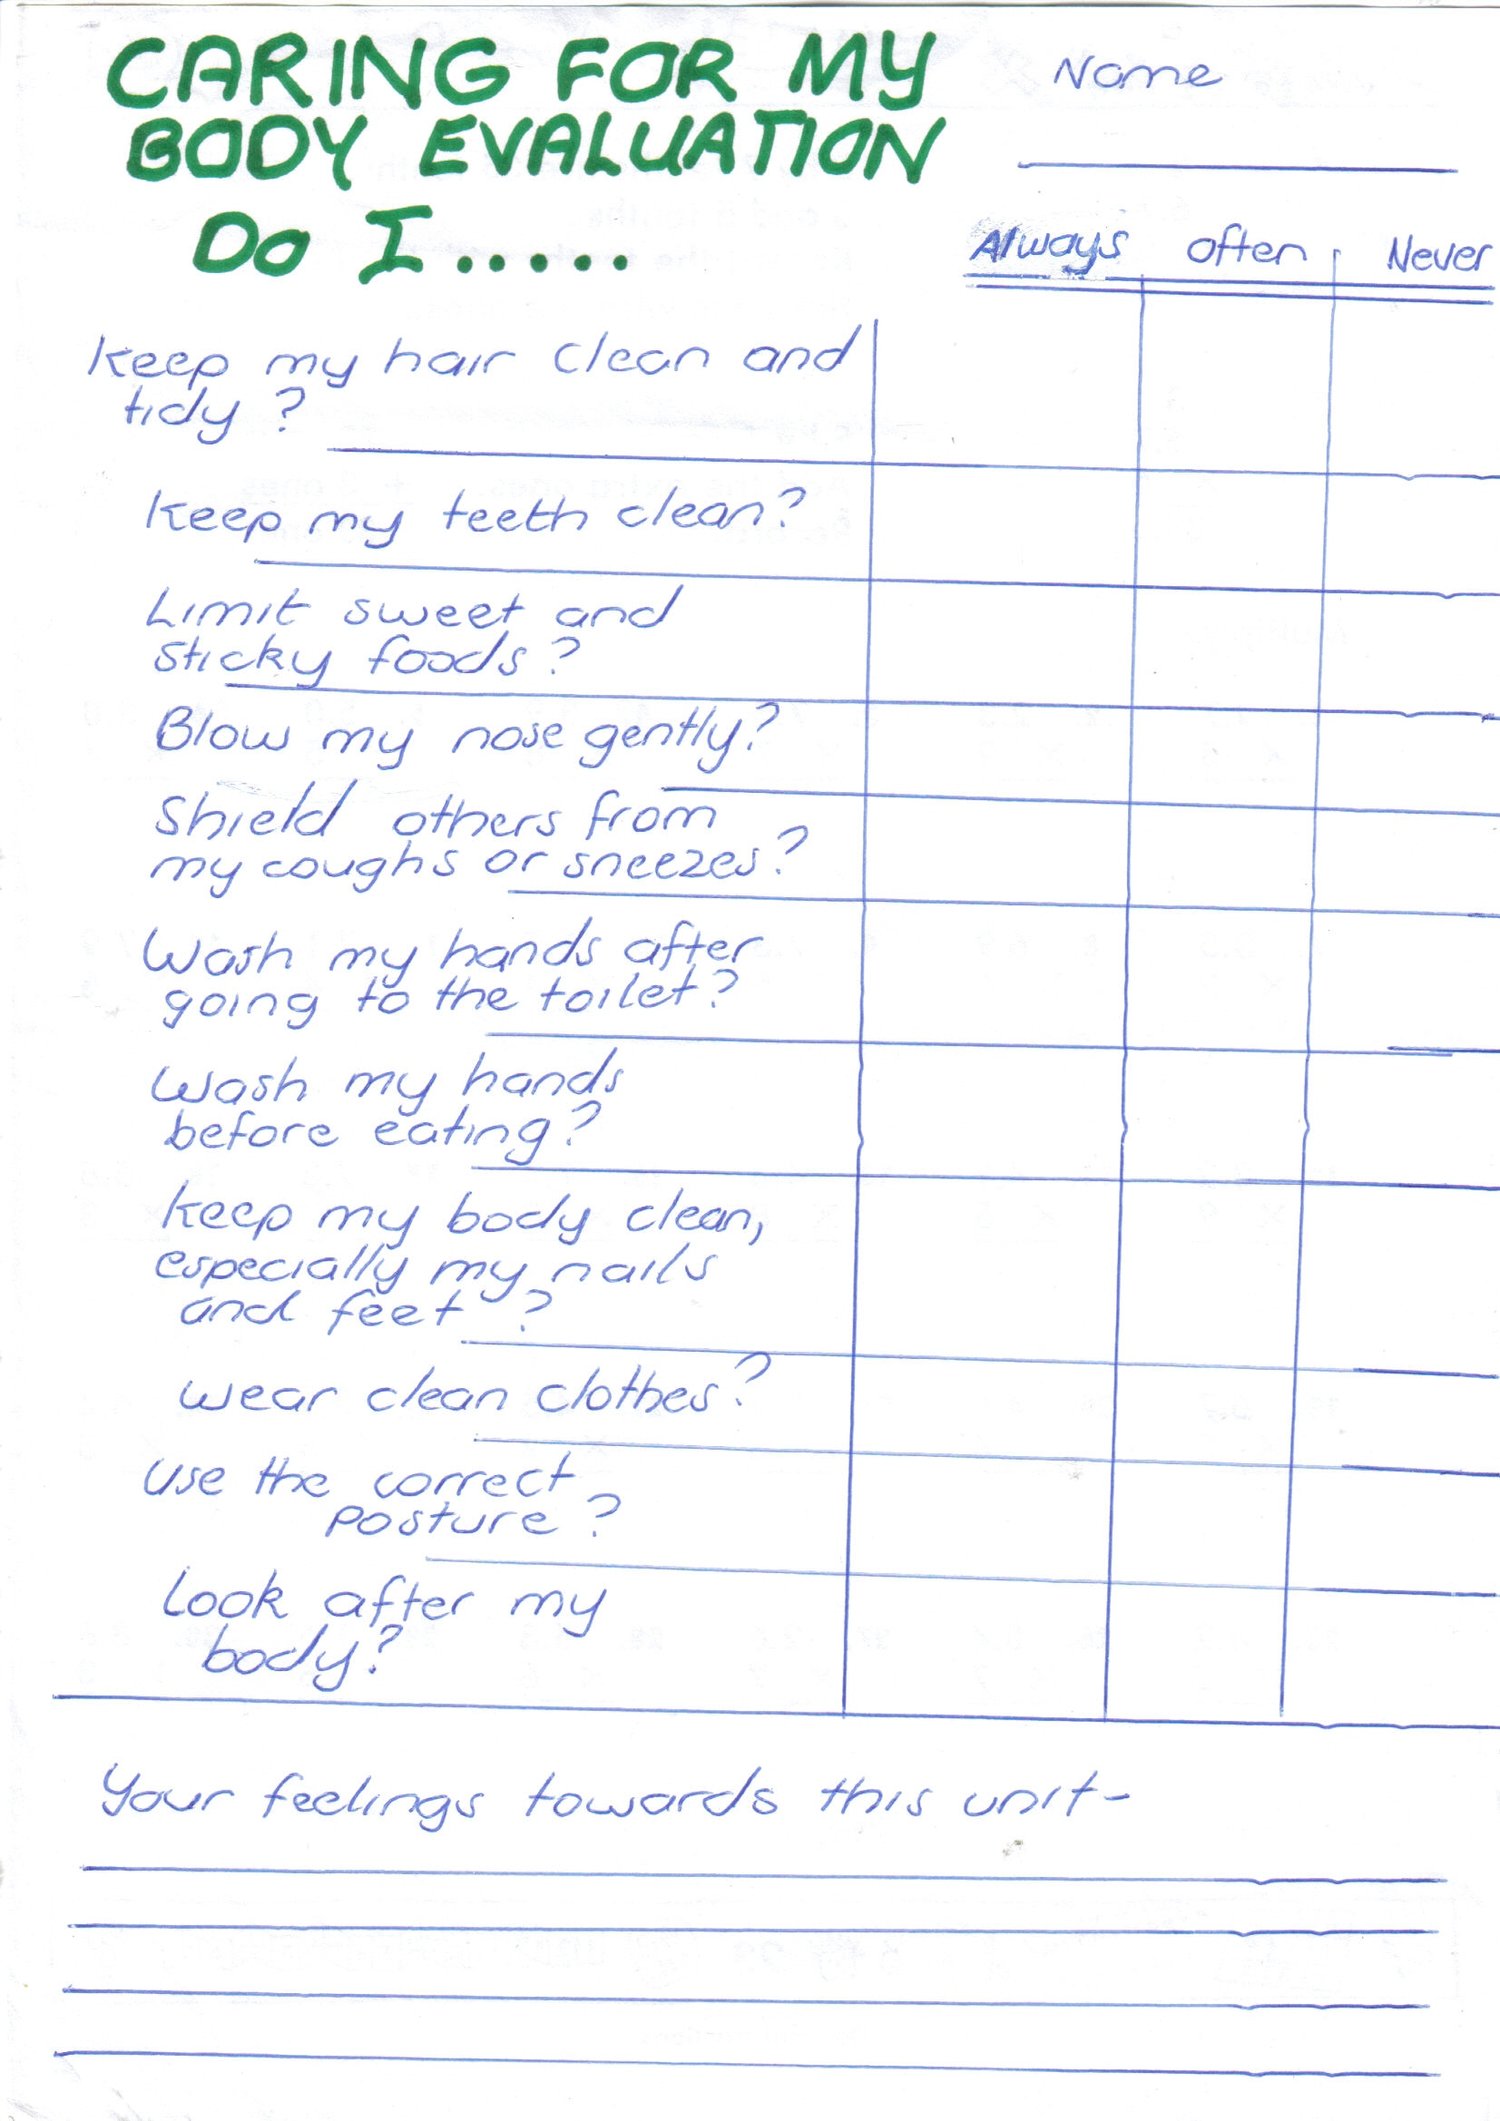 CARING FOR MY
Name
BODY EVALUATION
Do I.....
Always often Never
Keep my hair clean and
tidy ?
Keep my teeth clean?
Limit sweet and
sticky foods?
Blow my nose gently?
Shield others from
my coughs or sneezes?
Wash my hands after
going to the toilet?
Wash my hands
before eating?
Keep my body clean,
especially my nails
and feet ?
wear clean clothes?
Use the correct
posture?
Look after my
body?
Your feelings towards this unit-